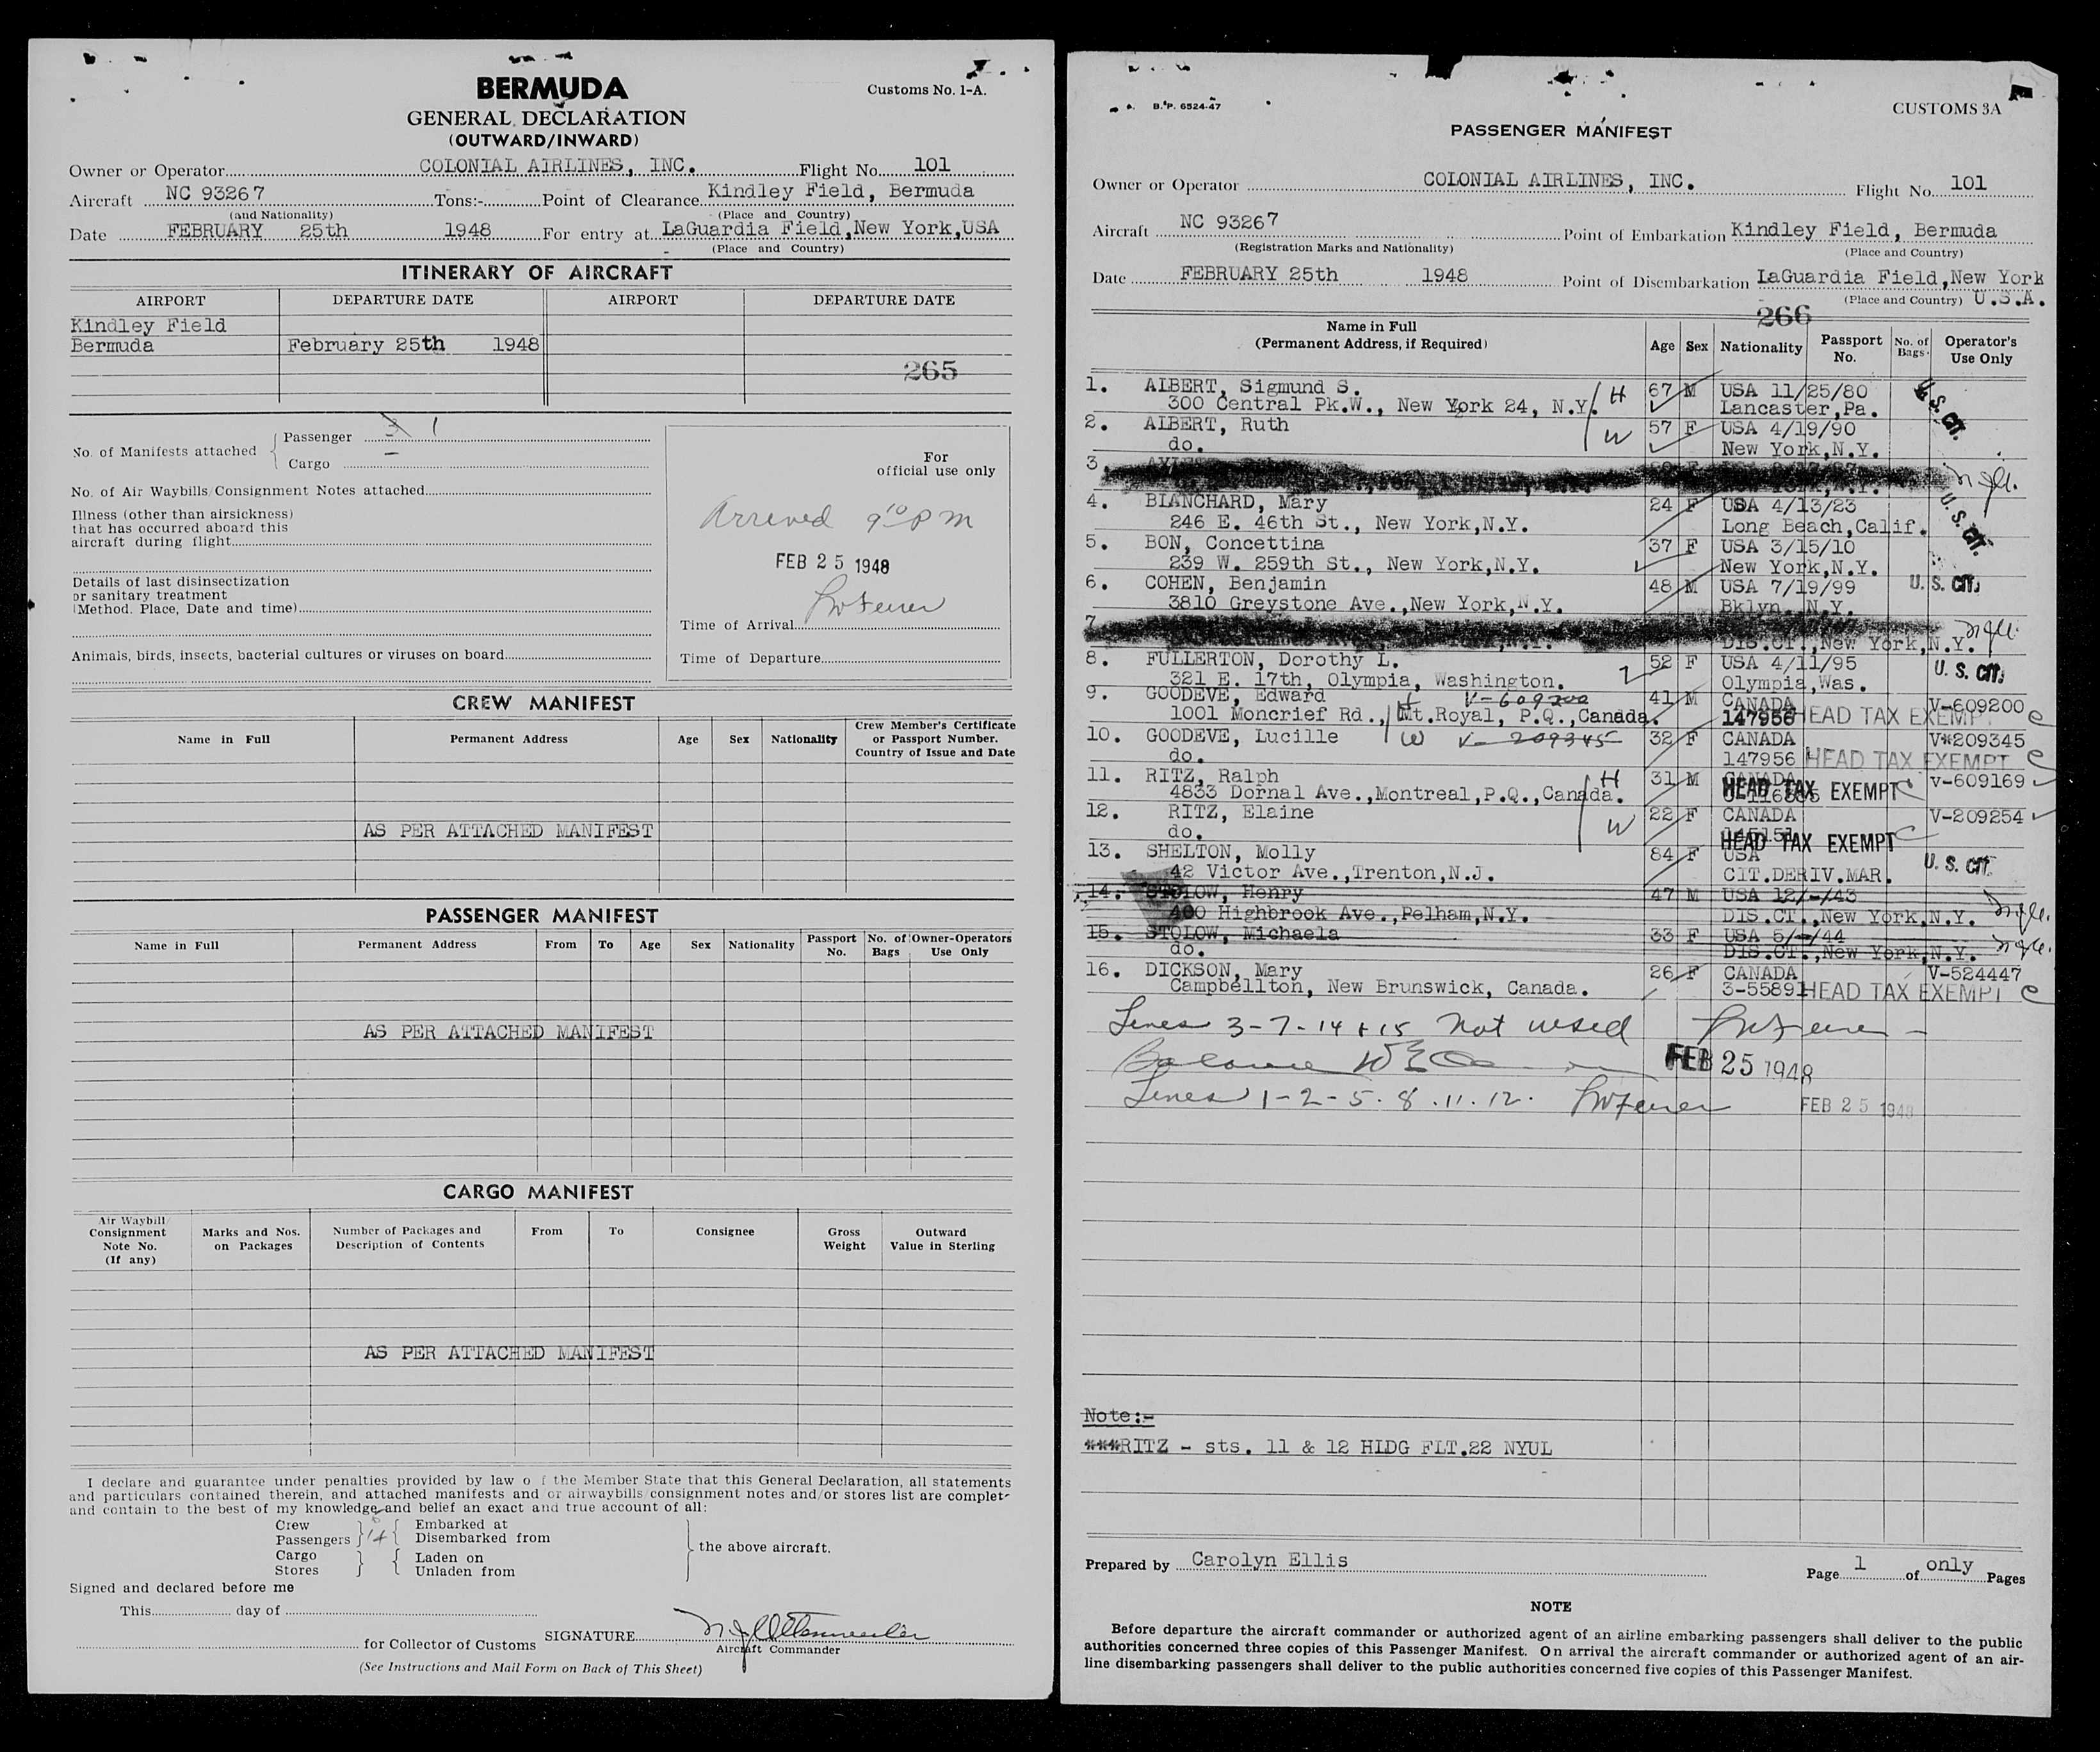 BERMUDA
Customs No. 1-A.
GENERAL DECLARATION
(OUTWARD/INWARD)
Owner or Operator COLONIAL AIRLINES, INC. Flight No. 101
Aircraft NC 93267 Tons:- Point of Clearance Kindley Field, Bermuda
(and Nationality) (Place and Country)
Date FEBRUARY 25th 1948 For entry at LaGuardia Field,New York,USA
(Place and Country)
ITINERARY OF AIRCRAFT
AIRPORT DEPARTURE DATE AIRPORT DEPARTURE DATE
Kindley Field
Bermuda February 25th 1948
265
No. of Manifests attached Passenger 3 1
Cargo –
No. of Air Waybills/Consignment Notes attached
Illness (other than airsickness)
that has occurred aboard this
aircraft during flight
Details of last disinsectization
or sanitary treatment
(Method. Place, Date and time)
Animals, birds, insects, bacterial cultures or viruses on board
For
official use only
Arrived 9 10 PM
FEB 25 1948
Time of Arrival
Time of Departure
CREW MANIFEST
Name in Full Permanent Address Age Sex Nationality Crew Member's Certificate
or Passport Number.
Country of Issue and Date
AS PER ATTACHED MANIFEST
PASSENGER MANIFEST
Name in Full Permanent Address From To Age Sex Nationality Passport No. No. of Bags Owner-Operators Use Only
AS PER ATTACHED MANIFEST
CARGO MANIFEST
Air Waybill/
Consignment
Note No.
(If any)
Marks and Nos.
on Packages
Number of Packages and
Description of Contents
From To Consignee
Gross
Weight
Outward
Value in Sterling
AS PER ATTACHED MANIFEST
I declare and guarantee under penalties provided by law o f the Member State that this General Declaration, all statements
and particulars contained therein, and attached manifests and or airwaybills/consignment notes and/or stores list are complete
and contain to the best of my knowledge and belief an exact and true account of all:
Crew Embarked at
Passengers 14 Disembarked from
the above aircraft.
Cargo Laden on
Stores Unladen from
Signed and declared before me
This day of
for Collector of Customs SIGNATURE
Aircraft Commander
(See Instructions and Mail Form on Back of This Sheet)
B.P. 6524-47
CUSTOMS 3A
PASSENGER MANIFEST
Owner or Operator COLONIAL AIRLINES, INC. Flight No. 101
Aircraft NC 93267 Point of Embarkation Kindley Field, Bermuda
(Registration Marks and Nationality) (Place and Country)
Date FEBRUARY 25th 1948 Point of Disembarkation LaGuardia Field,New York
(Place and Country) U.S.A.
266
Name in Full
(Permanent Address, if Required)
Age Sex Nationality Passport No. No. of Bags Operator's Use Only
1. ALBERT, Sigmund S. H 67 M USA 11/25/80
300 Central Pk.W., New York 24, N.Y. Lancaster,Pa. U. S. CIT.
2. ALBERT, Ruth W 57 F USA 4/19/90
do. New York,N.Y.
3.
4. BLANCHARD, Mary 24 F USA 4/13/23
246 E. 46th St., New York,N.Y. Long Beach,Calif. U. S. CIT.
5. BON, Concettina 37 F USA 3/15/10
239 W. 259th St., New York,N.Y. New York,N.Y.
6. COHEN, Benjamin 48 M USA 7/19/99 U. S. CIT.
3810 Greystone Ave.,New York,N.Y. Bklyn. N.Y.
7
DIS.CT.,New York,N.Y.
8. FULLERTON, Dorothy L. 52 F USA 4/11/95 U. S. CIT.
321 E. 17th, Olympia, Washington. Olympia,Was.
9. GOODEVE, Edward H V-609200 41 M CANADA V-609200
1001 Moncrief Rd., Mt.Royal, P.Q.,Canada. 147956 HEAD TAX EXEMPT C
10. GOODEVE, Lucille W V-209345 32 F CANADA V*209345
do. 147956 HEAD TAX EXEMPT C
11. RITZ, Ralph H 31 M CANADA V-609169
4833 Dornal Ave.,Montreal,P.Q.,Canada. HEAD TAX EXEMPT C
12. RITZ, Elaine W 22 F CANADA V-209254
do. HEAD TAX EXEMPT C
13. SHELTON, Molly 84 F USA U. S. CIT.
42 Victor Ave.,Trenton,N.J. CIT.DERIV.MAR.
14. STOLOW, Henry 47 M USA 12/-/43
400 Highbrook Ave.,Pelham,N.Y. DIS.CT.,New York,N.Y.
15. STOLOW, Michaela 33 F USA 5/-/44
do. DIS.CT.,New York,N.Y.
16. DICKSON, Mary 26 F CANADA V-524447
Campbellton, New Brunswick, Canada. 3-55891 HEAD TAX EXEMPT C
Lines 3-7-14 + 15 Not used
Balance
FEB 25 1948
Lines 1-2-5-8.11.12.
FEB 25 1948
Note:-
***RITZ - sts. 11 & 12 HLDG FLT.22 NYUL
Prepared by Carolyn Ellis
Page 1 of only Pages
NOTE
Before departure the aircraft commander or authorized agent of an airline embarking passengers shall deliver to the public
authorities concerned three copies of this Passenger Manifest. On arrival the aircraft commander or authorized agent of an air-
line disembarking passengers shall deliver to the public authorities concerned five copies of this Passenger Manifest.